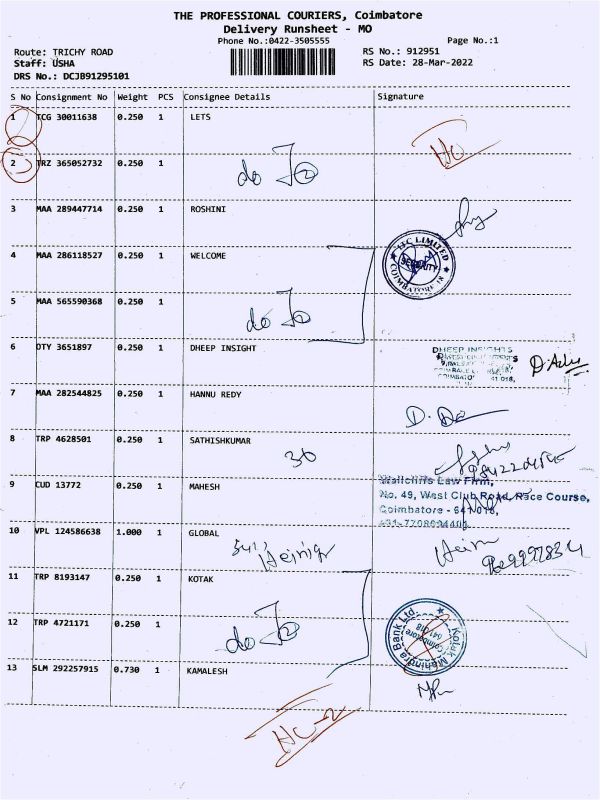 THE PROFESSIONAL COURIERS, Coimbatore
Delivery Runsheet - MO
Phone No.:0422-3505555 Page No.:1
Route: TRICHY ROAD RS No.: 912951
Staff: USHA RS Date: 28-Mar-2022
DRS No.: DCJB91295101
S No Consignment No Weight PCS Consignee Details Signature
1 TCG 30011638 0.250 1 LETS
2 TRZ 365052732 0.250 1
do
3 MAA 289447714 0.250 1 ROSHINI
ITC LIMITED
SECURITY
COIMBATORE 18
4 MAA 286118527 0.250 1 WELCOME
5 MAA 565590368 0.250 1
do
6 DTY 3651897 0.250 1 DHEEP INSIGHT
DHEEP INSIGHTS
7 MAA 282544825 0.250 1 HANNU REDY
8 TRP 4628501 0.250 1 SATHISHKUMAR
30
9 CUD 13772 0.250 1 MAHESH
Law Firm,
No. 49, West Club Road, Race Course,
Coimbatore - 641 018,
10 VPL 124586638 1.000 1 GLOBAL
11 TRP 8193147 0.250 1 KOTAK
12 TRP 4721171 0.250 1
do
Kotak Mahindra Bank Ltd.
Coimbatore
641 018
13 SLM 292257915 0.730 1 KAMALESH